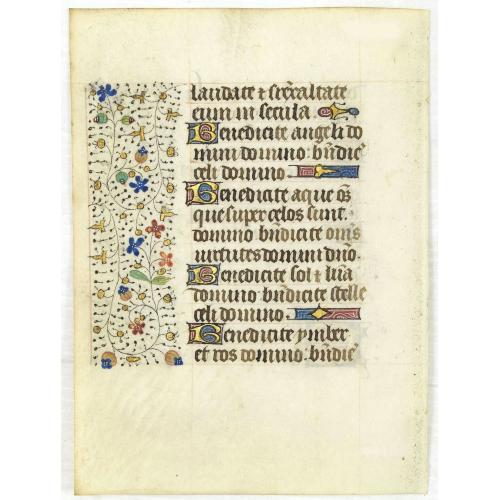 laudate & sup̄exaltate
eum in secula
Benedicite angeli do
mini domino: bn̄dic̄
celi domino
Benedicite aque om̄s
que super celos sunt.
domino bn̄dicite om̄s
virtutes domini dn̄o.
Benedicite sol & lūa
domino bn̄dicite stelle
celi domino.
Benedicite ymber
et ros domino: bn̄dic̄